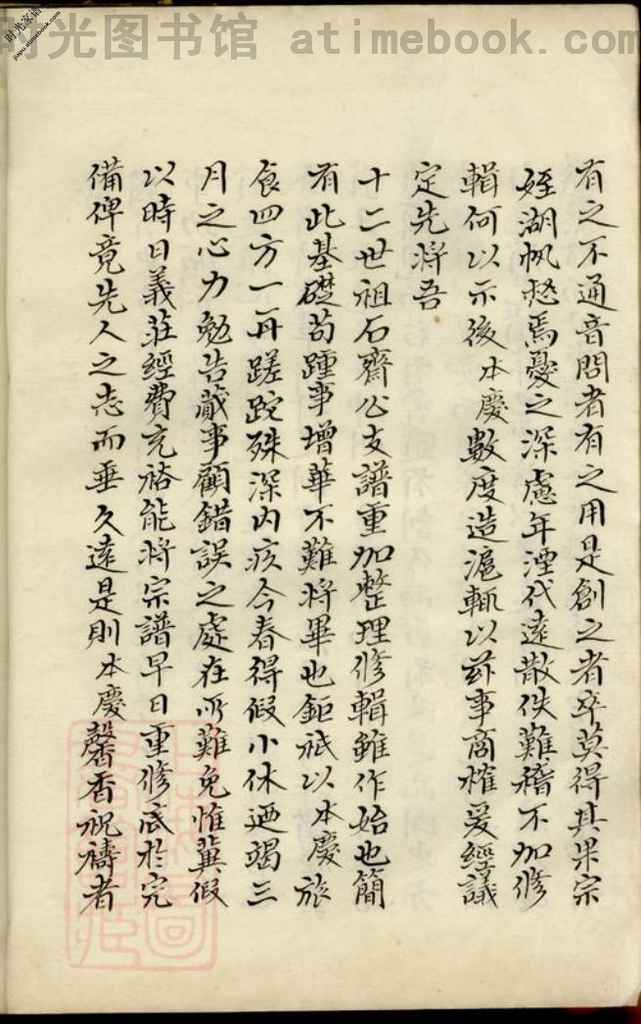 时光图书馆 atimebook.com
有之不通音問者有之用是創之者卒莫得其果宗
姪湖帆愁焉憂之深慮年湮代遠散佚難稽不加修
輯何以示後本慶數度造滬輒以茲事商榷爰經議
定先將吾
十二世祖石齋公支譜重加整理修輯雖作始也簡
有此基礎苟踵事增華不難將畢也鉅祇以本慶旅
食四方一再蹉跎殊深内疚今春得假小休迺竭三
月之心力勉告蕆事顧錯誤之處在所難免惟冀假
以時日義莊經費充裕能將宗譜早日重修底於完
備俾竟先人之志而垂久遠是則本慶馨香祝禱者